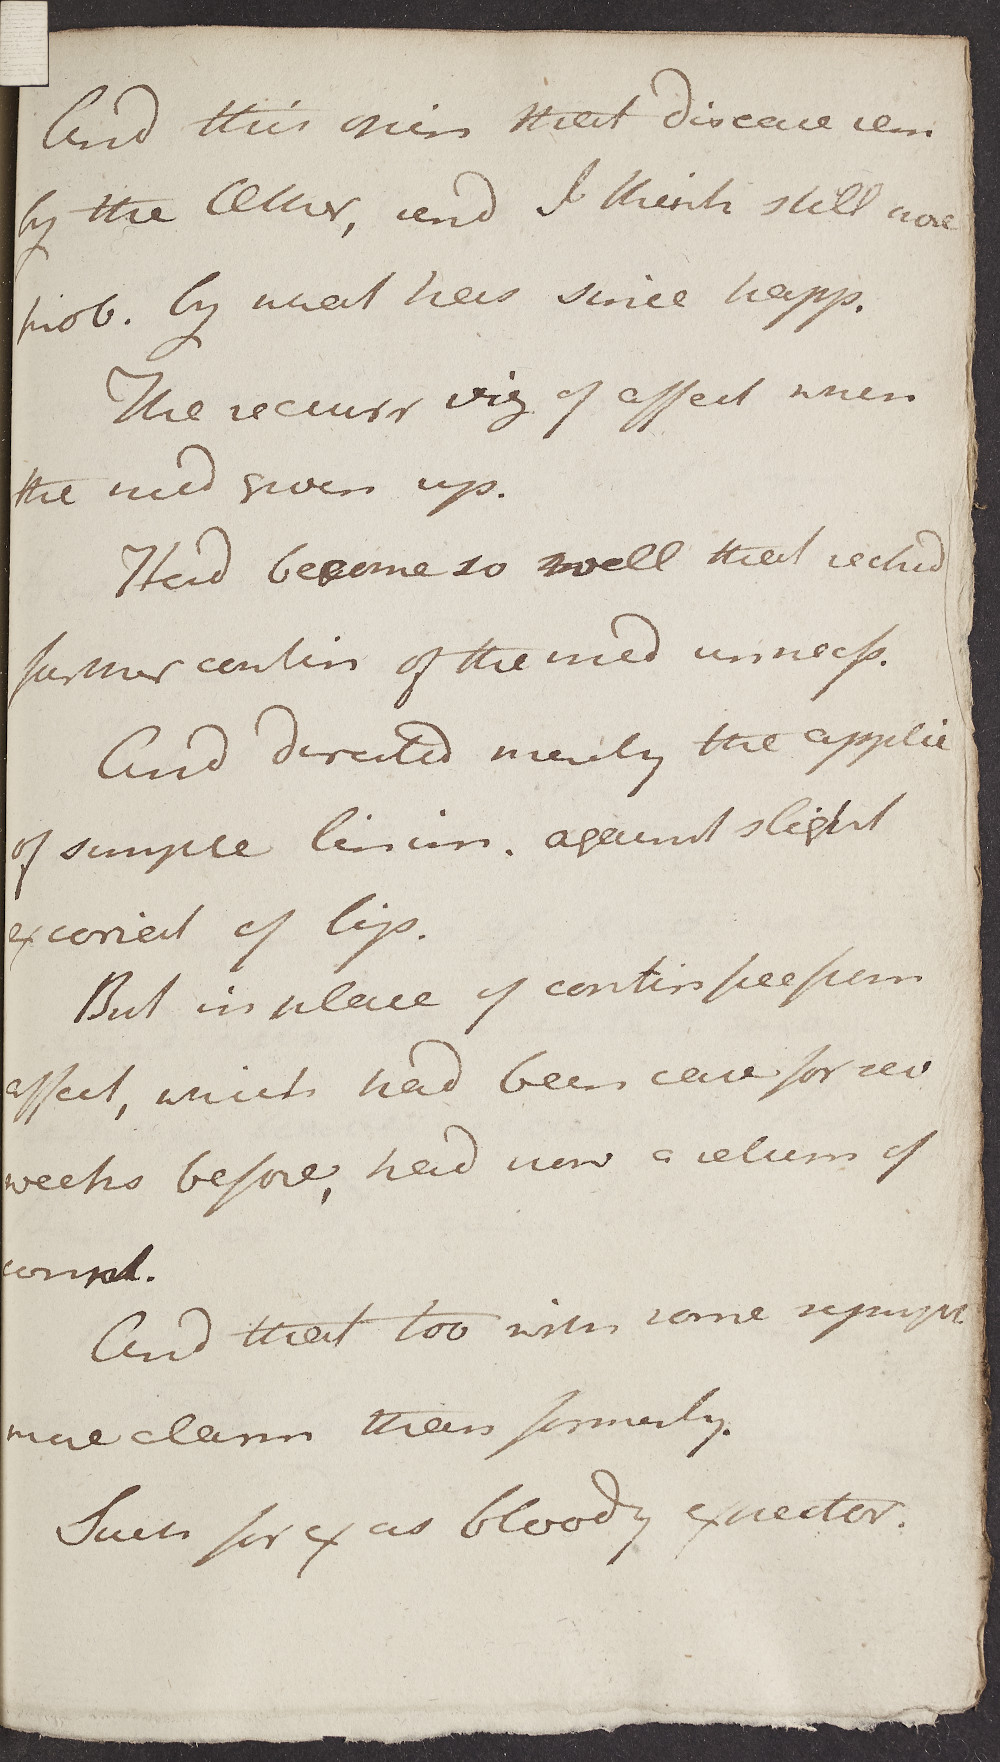 And this opin that disease rem
by the Other, and I think still more
prob. by what has since happ.
The recurr viz of affect when
the med given up.
Had become so well that reckd
further contin of the med unnecess.
And directed merely the applic
of simple linim. against slight
excoriat of lips.
But in place of contin
affect, which had been case for sev
weeks before, had now a return of
And that too with some sympt
more alarm than formerly.
Such for ex as bloody expector.